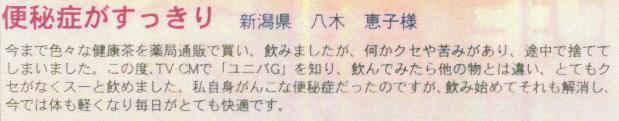 便秘症がすっきり 新潟県 八木 恵子様
今まで色々な健康茶を薬局通販で買い、飲みましたが、何かクセや苦みがあり、途中で捨てて
しまいました。この度、TV-CMで「ユニバG」を知り、飲んでみたら他の物とは違い、とてもク
セがなくスーと飲めました。私自身がんこな便秘症だったのですが、飲み始めてそれも解消し、
今では体も軽くなり毎日がとても快適です。